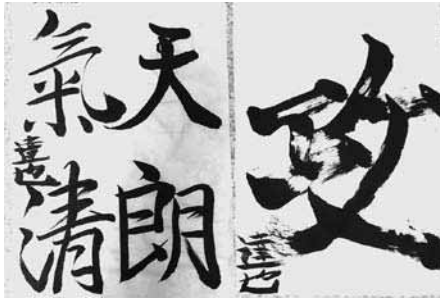 天朗
氣清
達也
達也